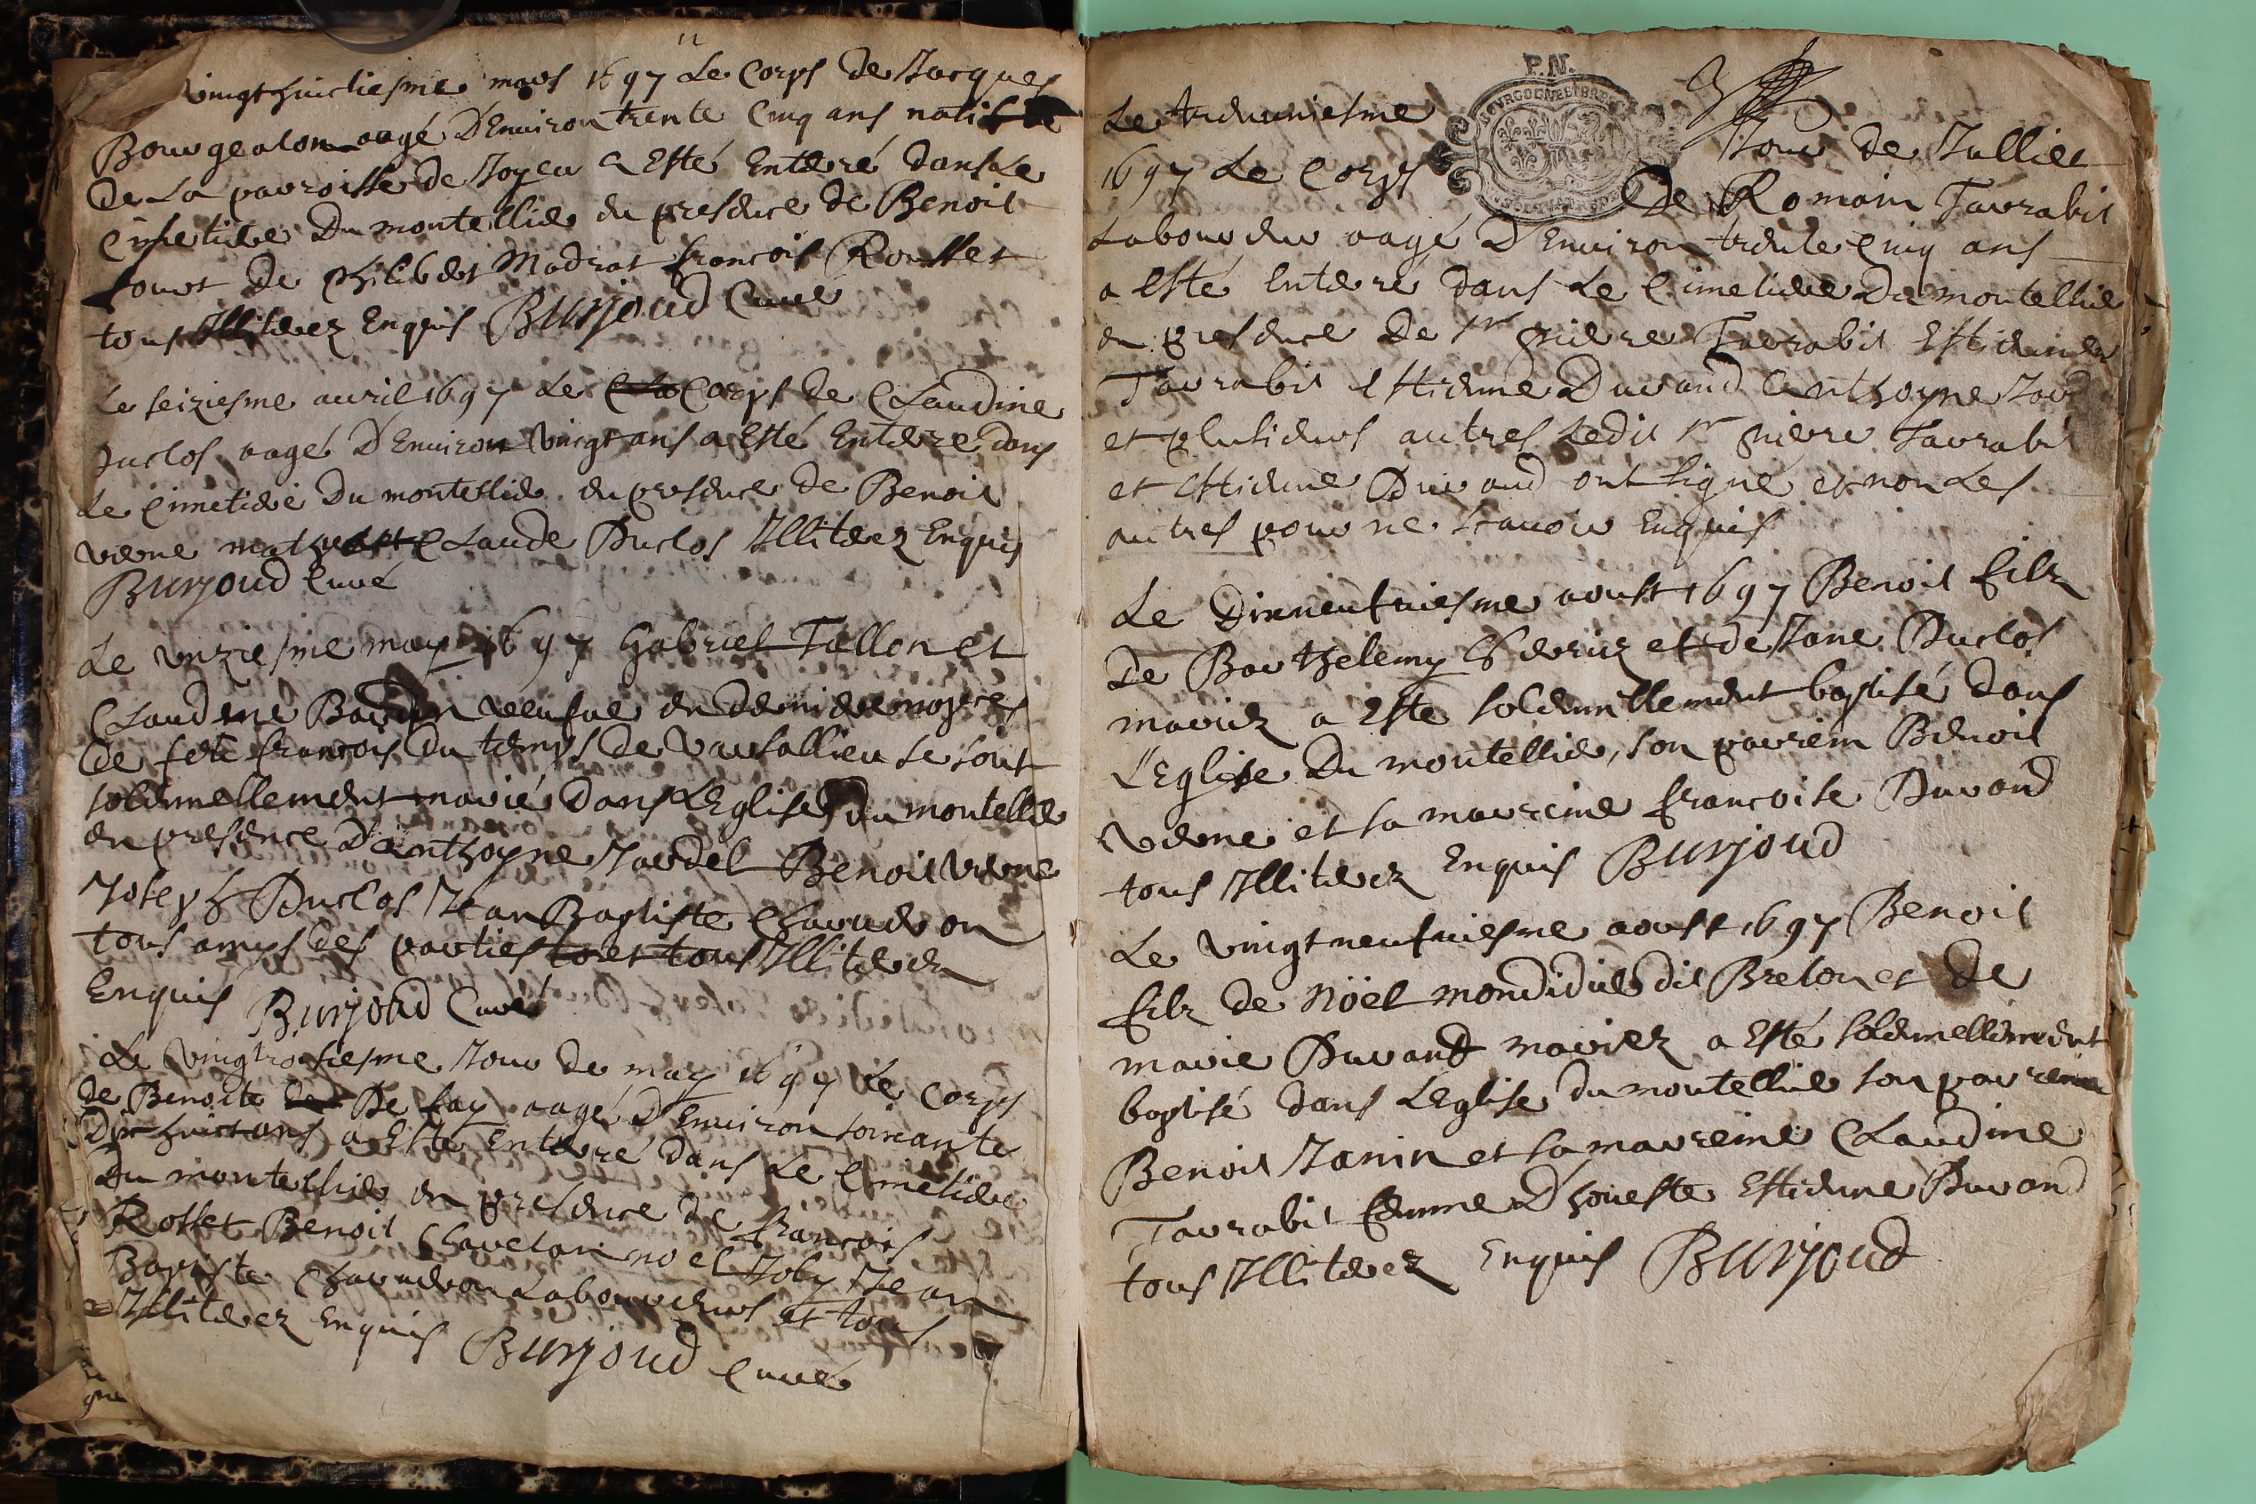 vingthuictiesme mars 1697 Le Corps de Jacques
Bourgealon aagé D'Environ trente Cinq ans natif de
De La parroisse de Joyeu a Esté Enterré dans Le
Cimetiere Du montellier en presence de Benoit
de Philibert Madrat françois Rousset
tous Illiterez Enquis Burjoud Curé
Le seiziesme auril 1697 Le Corps de Claudine
Duclos aagé D'Environ vingt ans a Esté Enterre dans
Le Cimetiere Du montellier en presence de Benoit
verne Claude Duclos Illiterez Enquis
Burjoud Curé
Le unziesme may 1697 Gabriel Tallon et
Claudine veufue en dernieres nopces
de feu françois du temps de se sont
solennellement marié dans L'Eglise du montellier
en presence D'anthoyne Jardel Benoit verne
Joseph Duclos Jean Baptiste Chaudron
tous amys des parties Illiterez
Enquis Burjoud Curé
Le vingtroisiesme Jour de may 1697 Le Corps
de Benoite De fay aagé D'Environ soixante
Dix huict ans a Esté Enterré dans Le Cimetiere
Du montellier en presence de françois
Rosset Benoit Clavelan noel Joly Jean
Baptiste Chaudron Laboureurs et tous
Illiterez Enquis Burjoud Curé
P.N.
Le trenuniesme Jour de Juillet
1697 Le Corps De Romain Tavrabit
Laboureur aagé D'Environ trente Cinq ans
a Esté Enterré dans Le Cimetiere Du montellier
en presence De sr pierre Tavrabit Estienne
Tavrabit Estienne Durand anthoyne
et plusieurs autres Ledit sr pierre Tavrabit
et Estienne Durand ont signé et non Les
autres pour ne scauoir Enquis
Le Dixneufuiesme aoust 1697 Benoit filz
de Barthelemy et de Jane Duclos
mariez a Este solennellement baptisé dans
L'Eglise Du montellier, son parrein Benoit
verne et sa marreine françoise Durand
tous Illiterez Enquis Burjoud
Le vingtneufuiesme aoust 1697 Benoit
filz de Nöel mondidier dit Breton et de
marie Durand mariez a Esté solennellement
baptisé dans L'Eglise du montellier son parrein
Benoit Janin et sa marreine Claudine
Tavrabit femme D'honeste Estienne Durand
tous Illiterez Enquis Burjoud